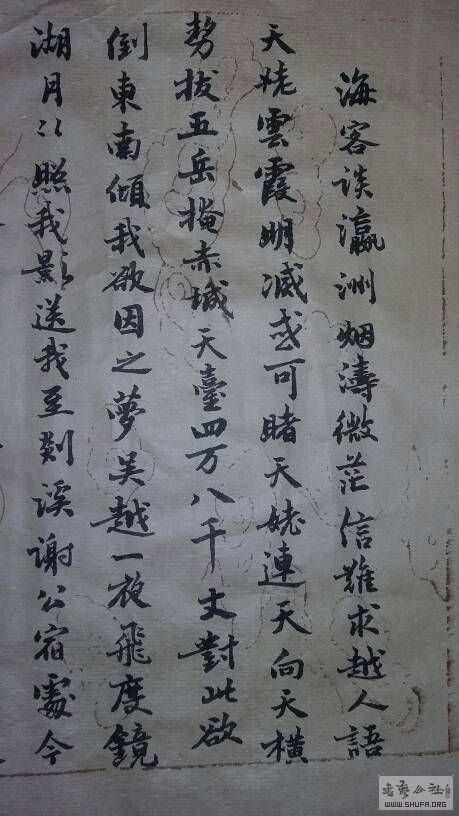 海客談瀛洲烟濤微茫信難求越人語
天姥雲霞明滅或可睹天姥連天向天橫
势拔五岳掩赤城天臺四万八千丈對此欲
倒東南傾我欲因之夢吴越一夜飛度鏡
湖月〻照我影送我至剡溪謝公宿處今
WWW.SHUFA.ORG